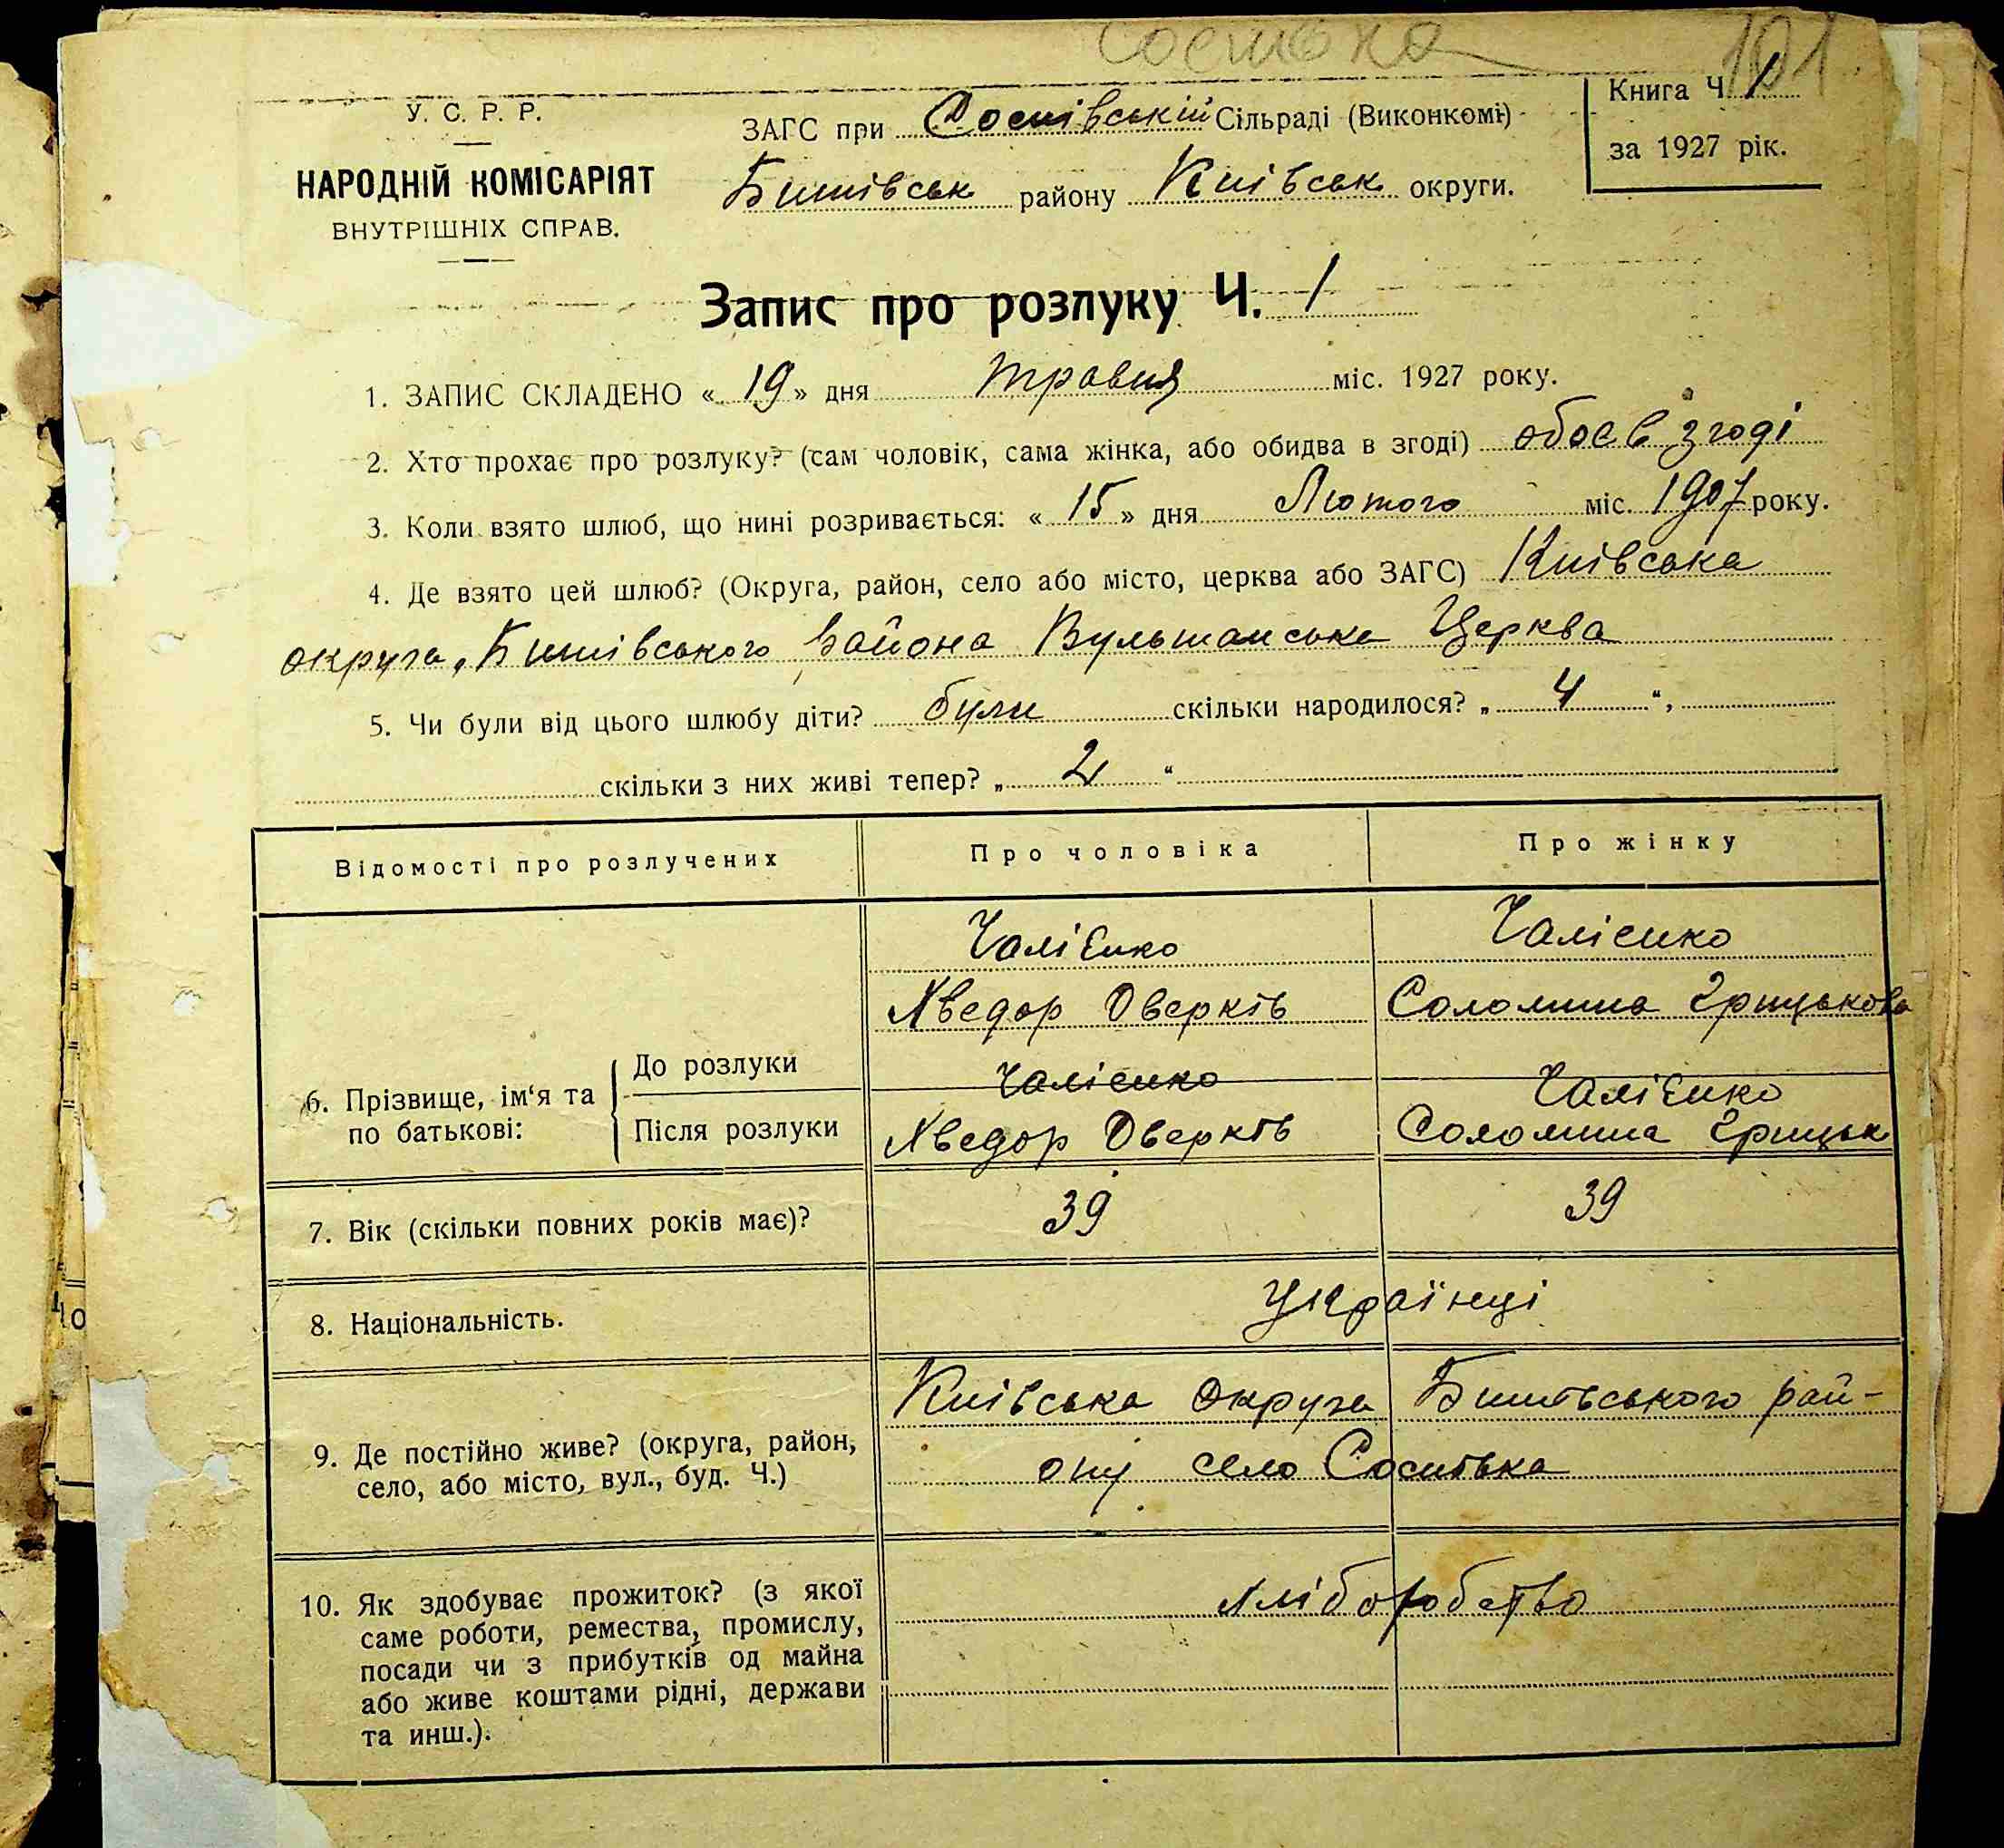 Соснівка 101
У. С. Р. Р.
НАРОДНІЙ КОМІСАРІЯТ
ВНУТРІШНІХ СПРАВ.
ЗАГС при Соснівській Сільраді (Виконкомі)
Бишівськ району Київськ округи.
Книга Ч. 1
за 1927 рік.
Запис про розлуку Ч. 1
1. ЗАПИС СКЛАДЕНО « 19 » дня травня міс. 1927 року.
2. Хто прохає про розлуку? (сам чоловік, сама жінка, або обидва в згоді) обоє в згоді
3. Коли взято шлюб, що нині розривається: « 15 » дня Лютого міс. 1907 року.
4. Де взято цей шлюб? (Округа, район, село або місто, церква або ЗАГС) Київська
округа, Бишівського Района Церква
5. Чи були від цього шлюбу діти? були скільки народилося? „ 4 “,
скільки з них живі тепер? „ 2 “
Відомості про розлучених Про чоловіка Про жінку
6. Прізвище, ім‘я та по батькові:
До розлуки
Чалієнко
Хведор Оверків
Чалієнко
Соломина Грицькова
Після розлуки
Чалієнко
Хведор Оверків
Чалієнко
Соломина Грицьк
7. Вік (скільки повних років має)? 39 39
8. Національність. Українці
9. Де постійно живе? (округа, район,
село, або місто, вул., буд. Ч.)
Київська Округа Бишівського рай-
ону село Соснівка
10. Як здобуває прожиток? (з якої
саме роботи, ремества, промислу,
посади чи з прибутків од майна
або живе коштами рідні, держави
та инш.).
хліборобство